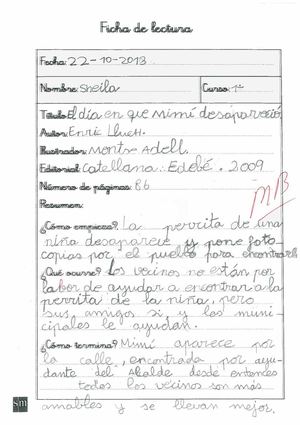 Ficha de lectura
Fecha: 22-10-2013
Nombre: Sheila Curso: 1º
Título: El día en que Mimí desapareció
Autor: Enric Lluch.
Ilustrador: Montse Adell.
Editorial: Catellana: Edebé. 2009
Número de páginas: 86
MB
Resumen:
¿Cómo empieza? La perrita de una
niña desaparece y pone foto
copias por el pueblo para encontrarla
¿Qué ocurre? Los vecinos no están por
labor de ayudar a encontrar a la
perrita de la niña, pero
sus amigos si y los muni-
cipales le ayudan.
¿Cómo termina? Mimí aparece por
la calle, encontrada por ayu-
dante del Alcalde desde entonces
todos los vecinos son más
amables y se llevan mejor.
sm